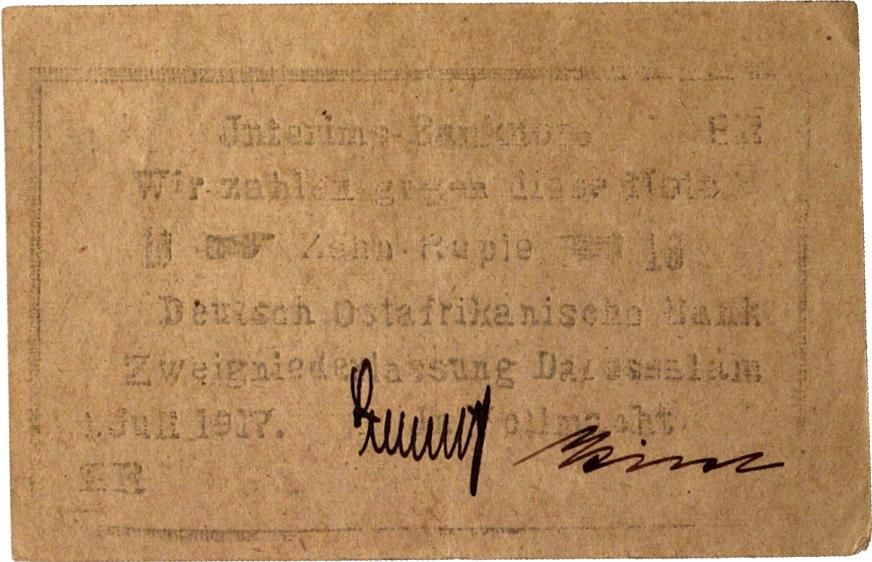 Interims-Banknote ER
Wir zahlen gegen diese Note
10 Zehn Rupie 10
Deutsch Ostafrikanische Bank
Zweigniederlassung Daressalam
1. Juli 1917. Vollmacht
ER